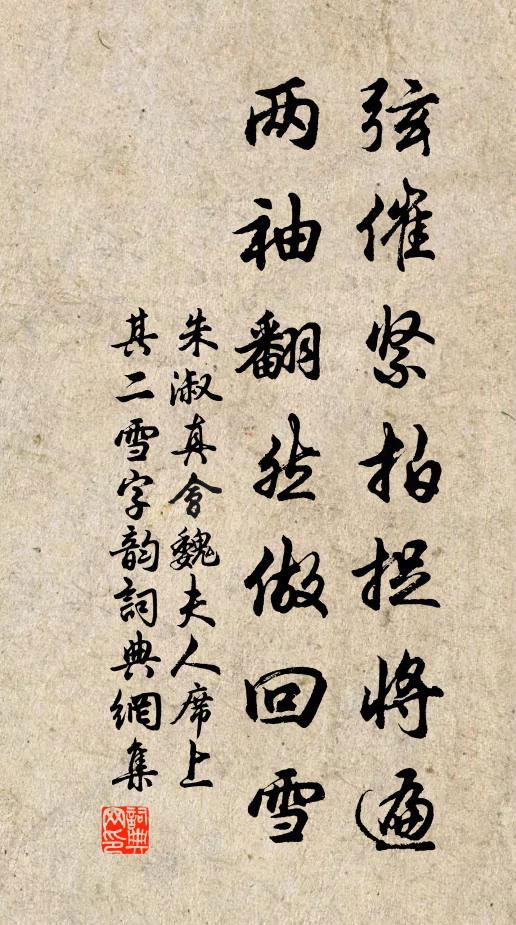 弦催紧拍捉将遍
两袖翻然做回雪
朱淑真会魏夫人席上
其二雪字韵詞典網集
詞典
网印